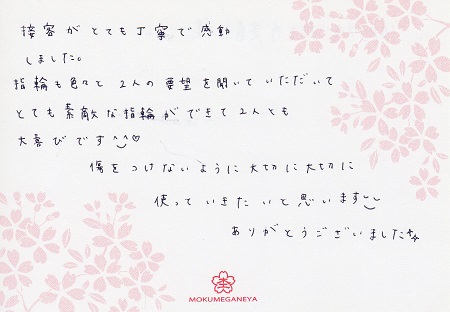 接客がとても丁寧で感動
しました。
指輪も色々と2人の要望を聞いていただいて
とても素敵な指輪ができて2人とも
大喜びです^^♡
傷をつけないように大切に大切に
使っていきたいと思います
ありがとうございました
MOKUMEGANEYA